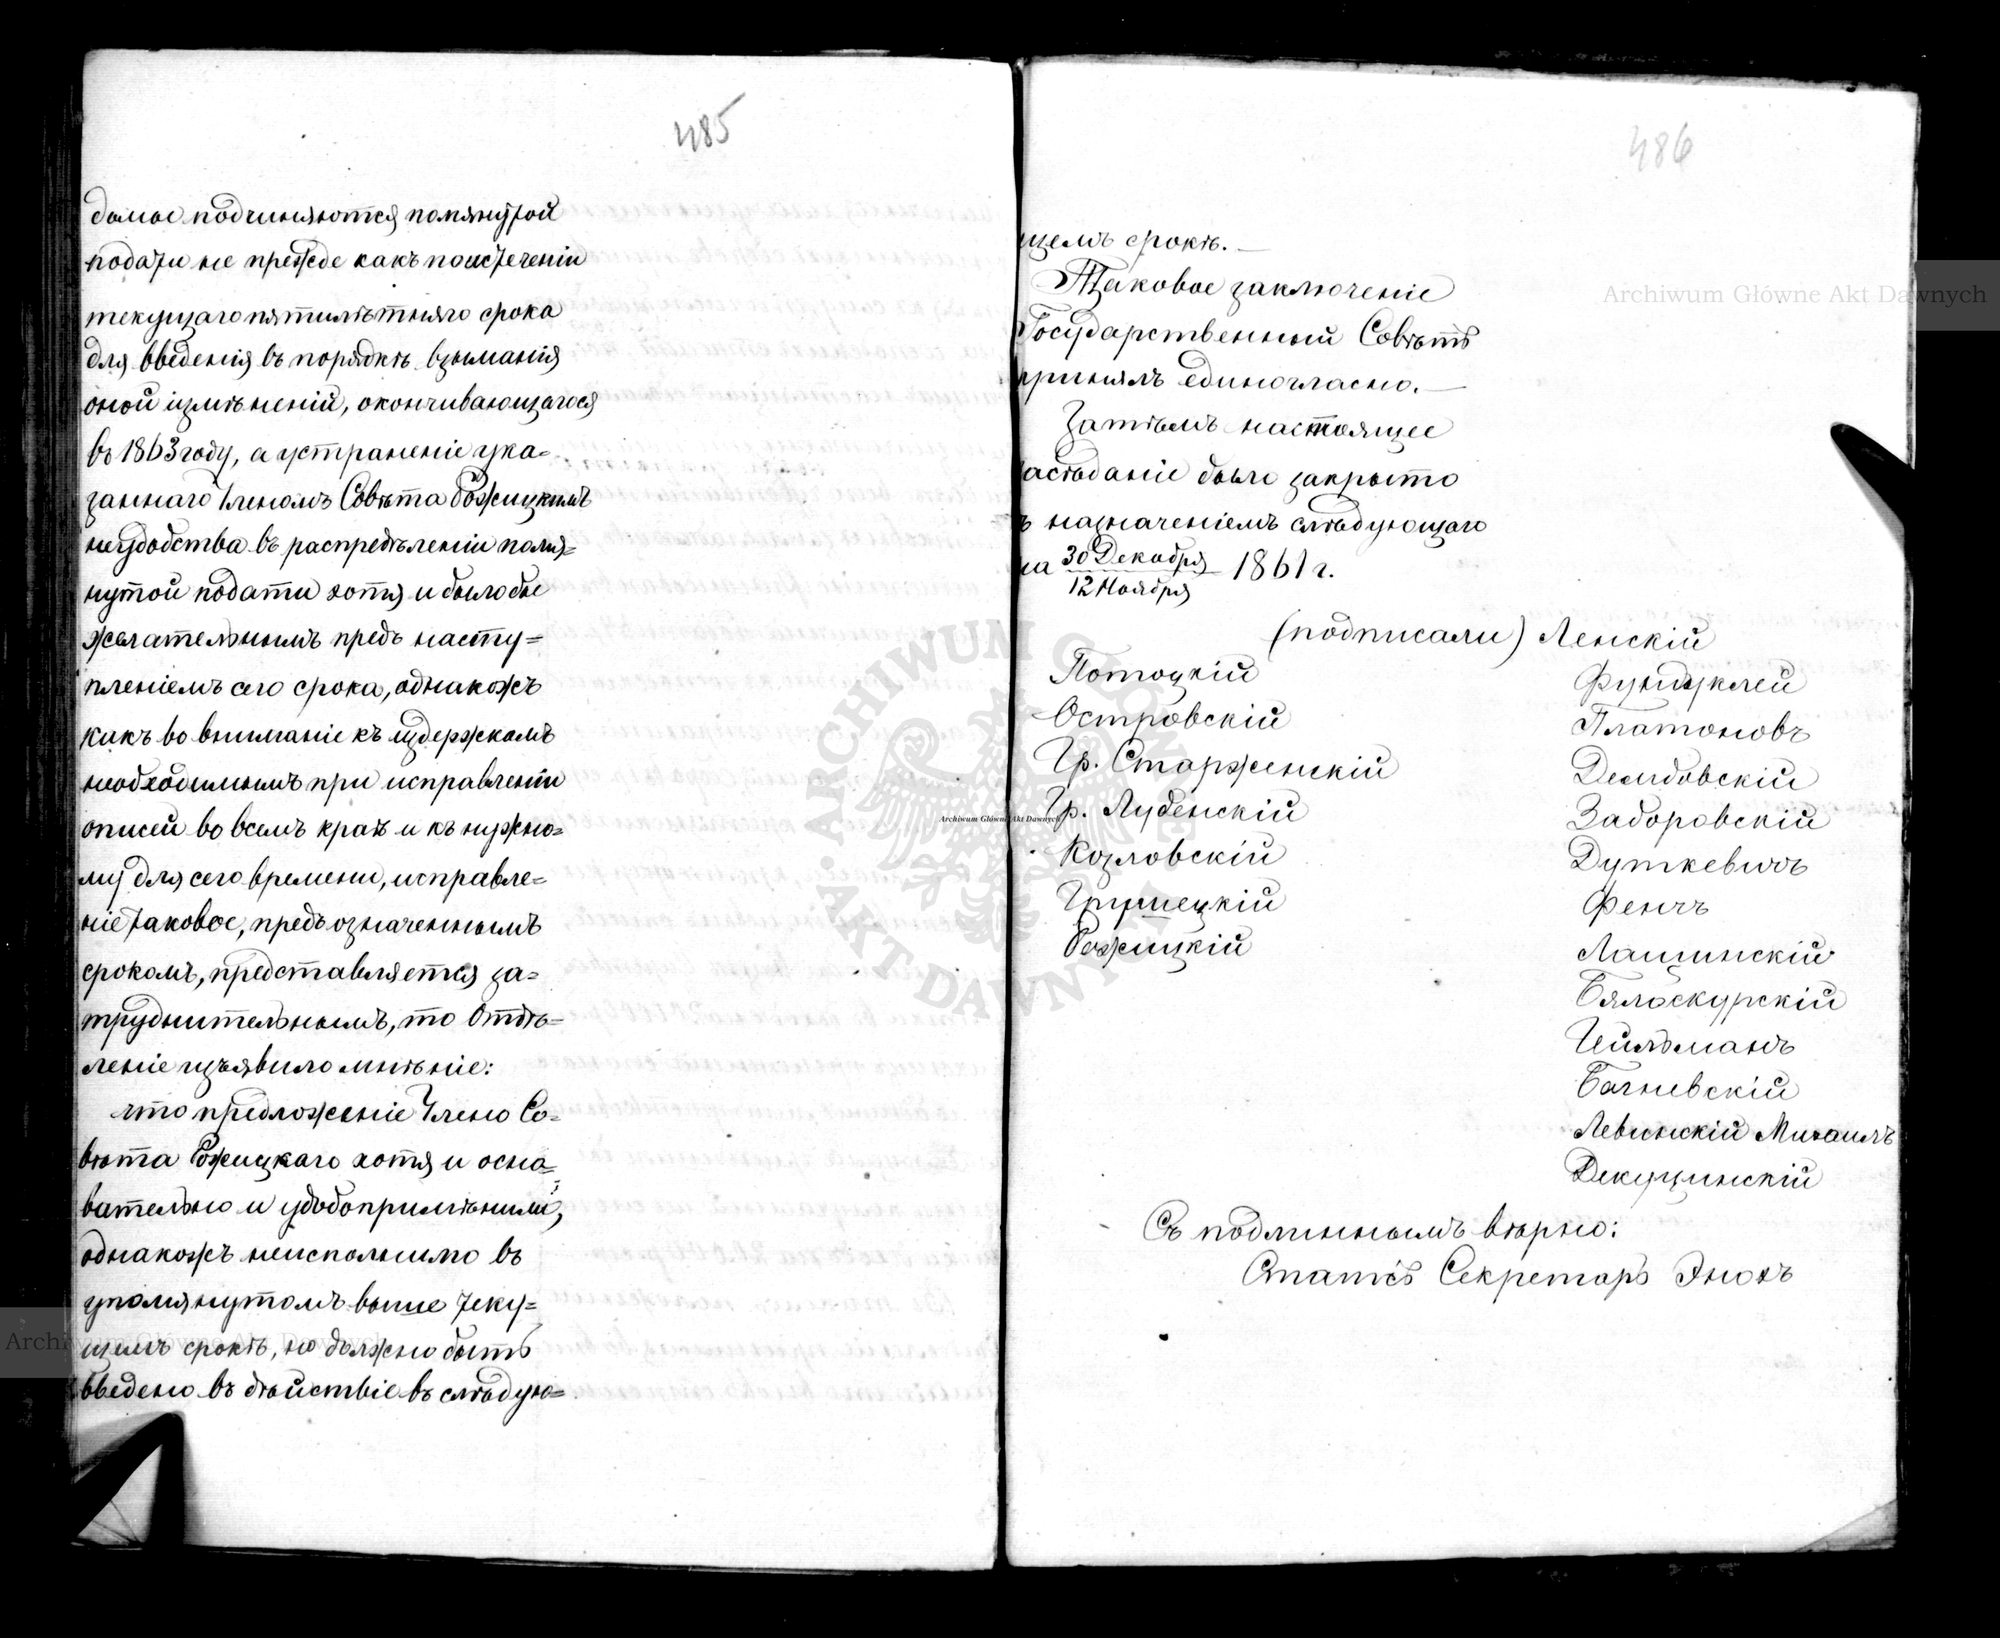 485
домое подчиняются помянутой
подати не прежде какъ поистеченіи
текущаго пятилѣтняго срока
для введенія въ порядкѣ взыманія
оной ізмѣненій, окончивающагося
въ 1863 году, а устраненіе ука=
заннаго Членомъ Совѣта Рожицкимъ
неудобства въ распредѣленіи помя=
нутой подати хотя и былобы
желательнымъ предъ насту=
пленіемъ сего срока, однакожъ
какъ во вниманіе къ издержкамъ
необходимымъ при исправленіи
описей во всемъ краѣ и къ нужно=
му для сего времени, исправле=
ніе таковое, предъ означеннымъ
срокомъ, представляется за=
труднительнымъ, то Отдѣ=
леніе изъявило мнѣніе:
что предложеніе Члена Со=
вѣта Рожицкаго хотя и осно=
вательно и удобопримѣнимо,
однакожъ неисполнимо въ
упомянутомъ выше теку=
щемъ срокѣ, но должно быть
введено въ дѣйствіе въ слѣдую=
486
щемъ срокѣ. —
Таковое заключеніе
Государственный Совѣтъ
принялъ единогласно. —
Затѣмъ настоящее
засѣданіе было закрыто
съ назначеніемъ слѣдующаго
на 30 Декабря / 12 Ноября 1861 г.
(подписали) Ленскій
Потоцкій
Островскій
Гр. Старженскій
Гр. Лубенскій
Козловскій
Грушецкій
Рожицкій
Фундуклей
Платоновъ
Дембовскій
Заборовскій
Дуткевичъ
Фенчъ
Лащинскій
Бялоскурскій
Гейльманъ
Багневскій
Левинскій Михаилъ
Декуцинскій
Съ подлиннымъ вѣрно:
Статсъ Секретарь Энохъ
Archiwum Główne Akt Dawnych
Archiwum Główne Akt Dawnych
Archiwum Główne Akt Dawnych
ARCHIWUM GŁÓWNE AKT DAWNYCH